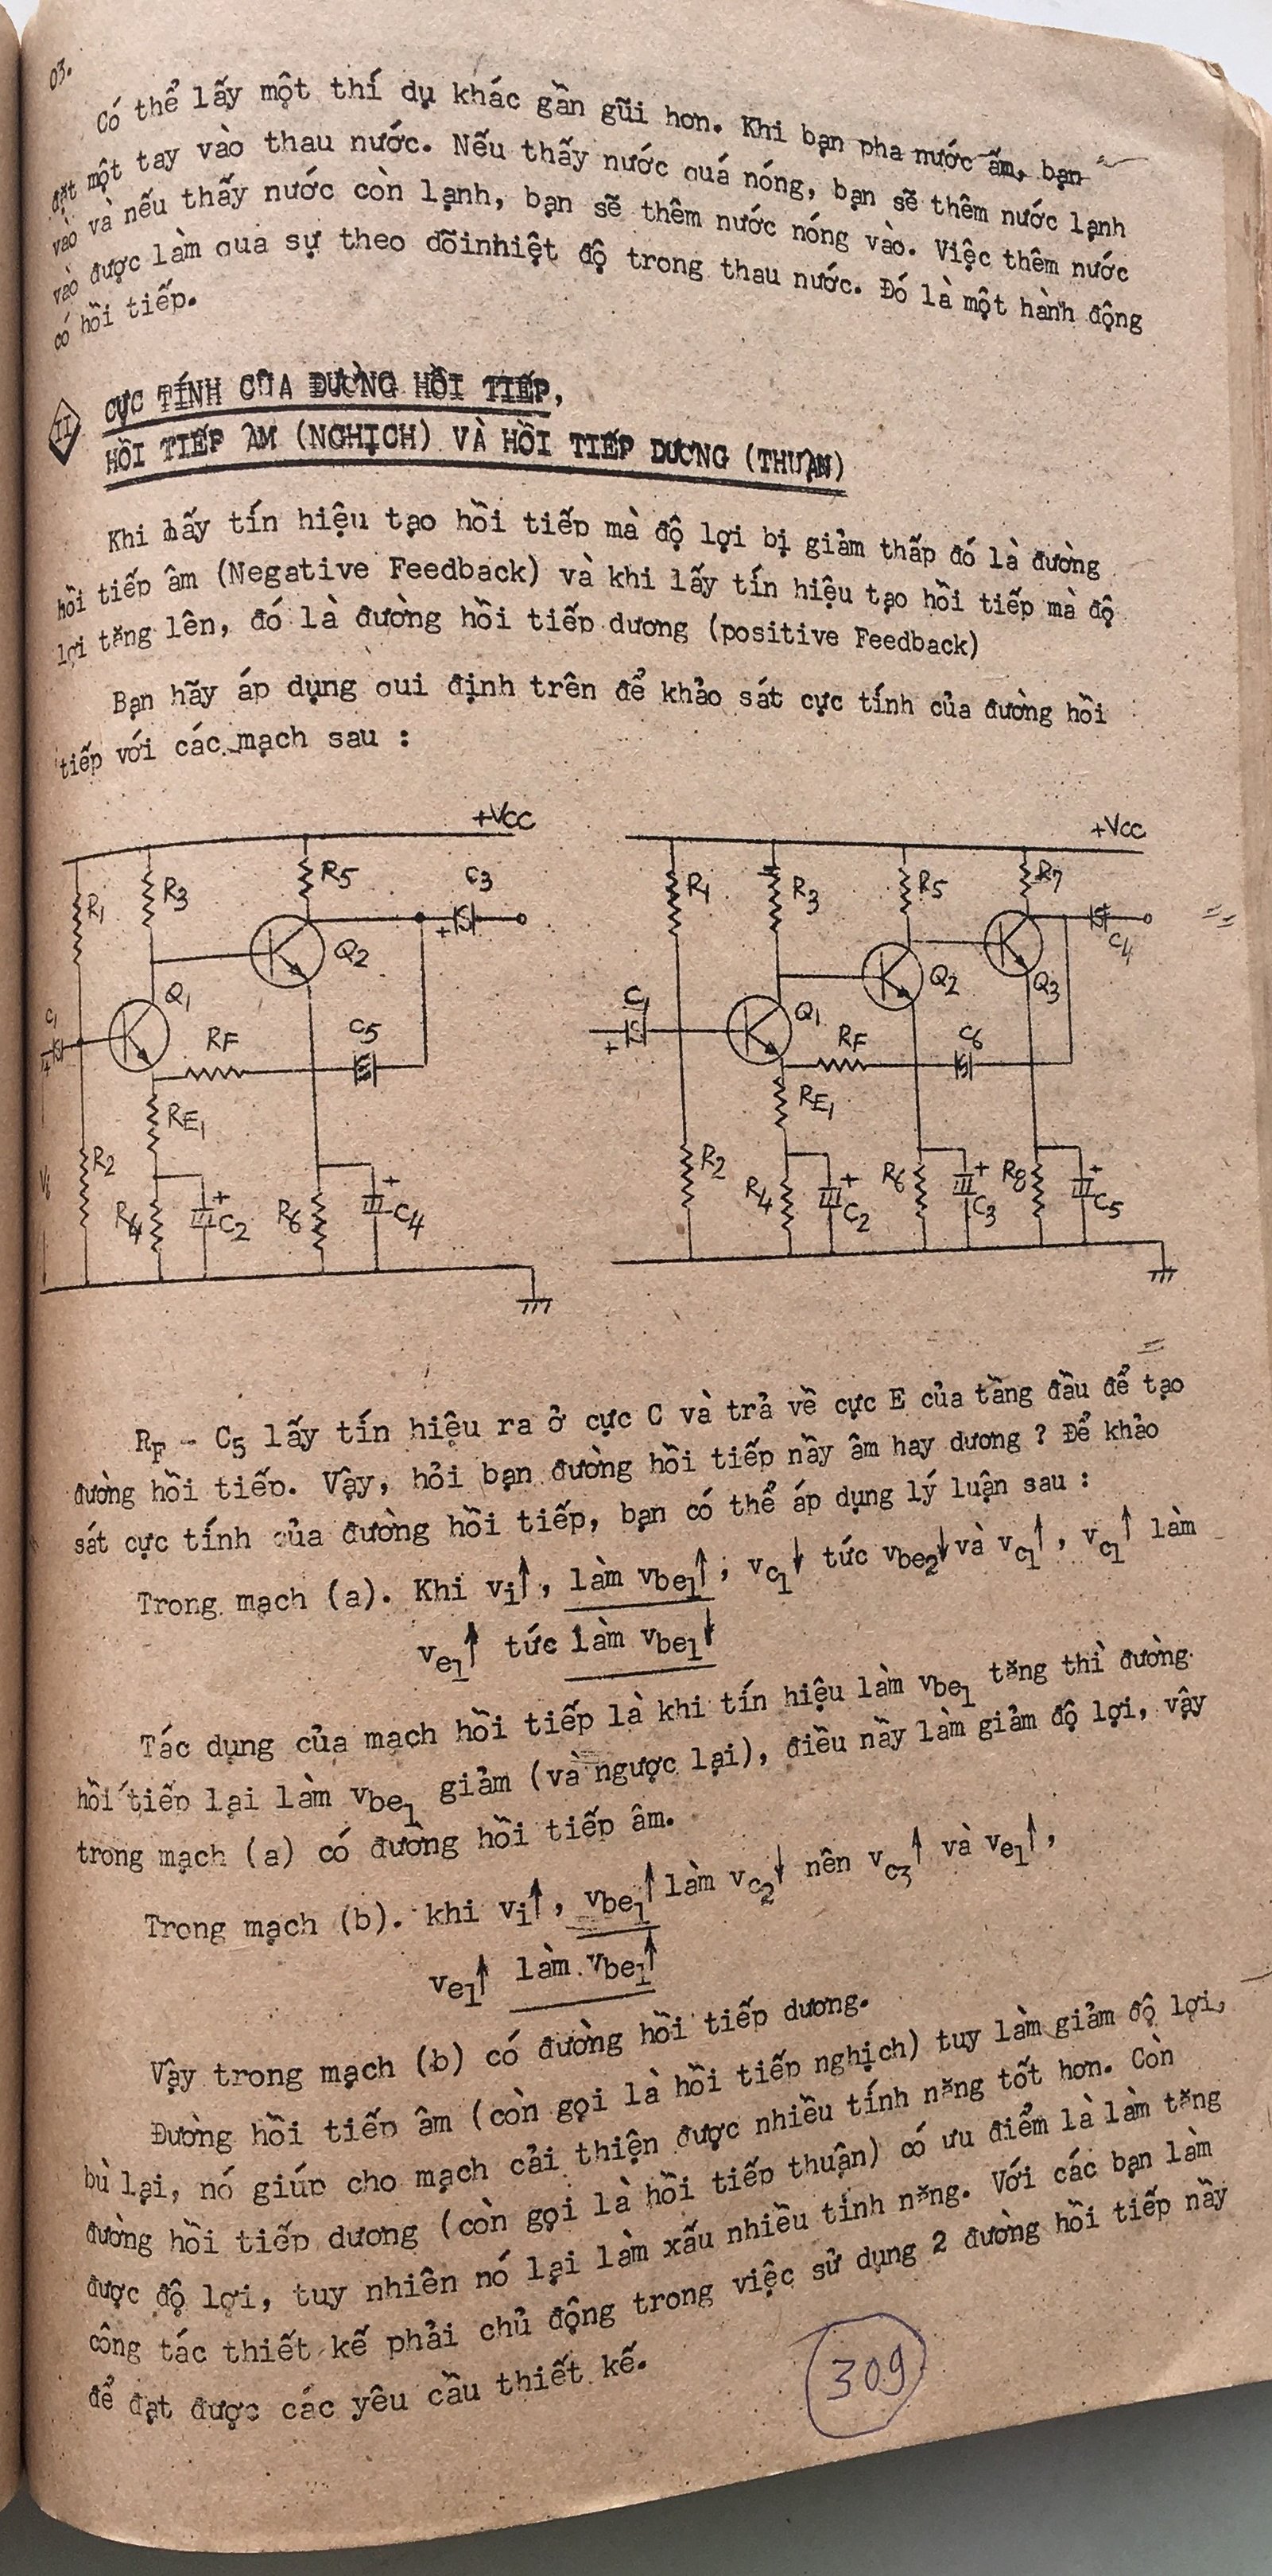 03.
Có thể lấy một thí dụ khác gần gũi hơn. Khi bạn pha nước ấm, bạn
đặt một tay vào thau nước. Nếu thấy nước quá nóng, bạn sẽ thêm nước lạnh
vào và nếu thấy nước còn lạnh, bạn sẽ thêm nước nóng vào. Việc thêm nước
vào được làm qua sự theo dõinhiệt độ trong thau nước. Đó là một hành động
có hồi tiếp.
II CỰC TÍNH CỦA ĐƯỜNG HỒI TIẾP,
HỒI TIẾP ÂM (NGHỊCH) VÀ HỒI TIẾP DƯƠNG (THUẬN)
Khi lấy tín hiệu tạo hồi tiếp mà độ lợi bị giảm thấp đó là đường
hồi tiếp âm (Negative Feedback) và khi lấy tín hiệu tạo hồi tiếp mà độ
lợi tăng lên, đó là đường hồi tiếp dương (positive Feedback)
Bạn hãy áp dụng qui định trên để khảo sát cực tính của đường hồi
tiếp với các mạch sau :
+VCC
R1 R3 R5 C3
+
Q2
Q1
C1 RF C5
+
RE1
R2
Vi
R4 + C2 R6 + C4
+VCC
R1 R3 R5 R7
C4
Q2 Q3
C1 Q1
+ RF C6
RE1
R2
R4 + C2 R6 + C3 R8 + C5
RF - C5 lấy tín hiệu ra ở cực C và trả về cực E của tầng đầu để tạo
đường hồi tiếp. Vậy, hỏi bạn đường hồi tiếp nầy âm hay dương ? Để khảo
sát cực tính của đường hồi tiếp, bạn có thể áp dụng lý luận sau :
Trong mạch (a). Khi vi↑, làm vbe1↑, vc1↓ tức vbe2↓ và vc1↑, vc1↑ làm
ve1↑ tức làm vbe1↓
Tác dụng của mạch hồi tiếp là khi tín hiệu làm vbe1 tăng thì đường
hồi tiếp lại làm vbe1 giảm (và ngược lại), điều nầy làm giảm độ lợi, vậy
trong mạch (a) có đường hồi tiếp âm.
Trong mạch (b). khi vi↑, vbe1↑ làm vc2↓ nên vc3↑ và ve1↑,
ve1↑ làm vbe1↑
Vậy trong mạch (b) có đường hồi tiếp dương.
Đường hồi tiếp âm (còn gọi là hồi tiếp nghịch) tuy làm giảm độ lợi,
bù lại, nó giúp cho mạch cải thiện được nhiều tính năng tốt hơn. Còn
đường hồi tiếp dương (còn gọi là hồi tiếp thuận) có ưu điểm là làm tăng
được độ lợi, tuy nhiên nó lại làm xấu nhiều tính năng. Với các bạn làm
công tác thiết kế phải chủ động trong việc sử dụng 2 đường hồi tiếp nầy
để đạt được các yêu cầu thiết kế.
309